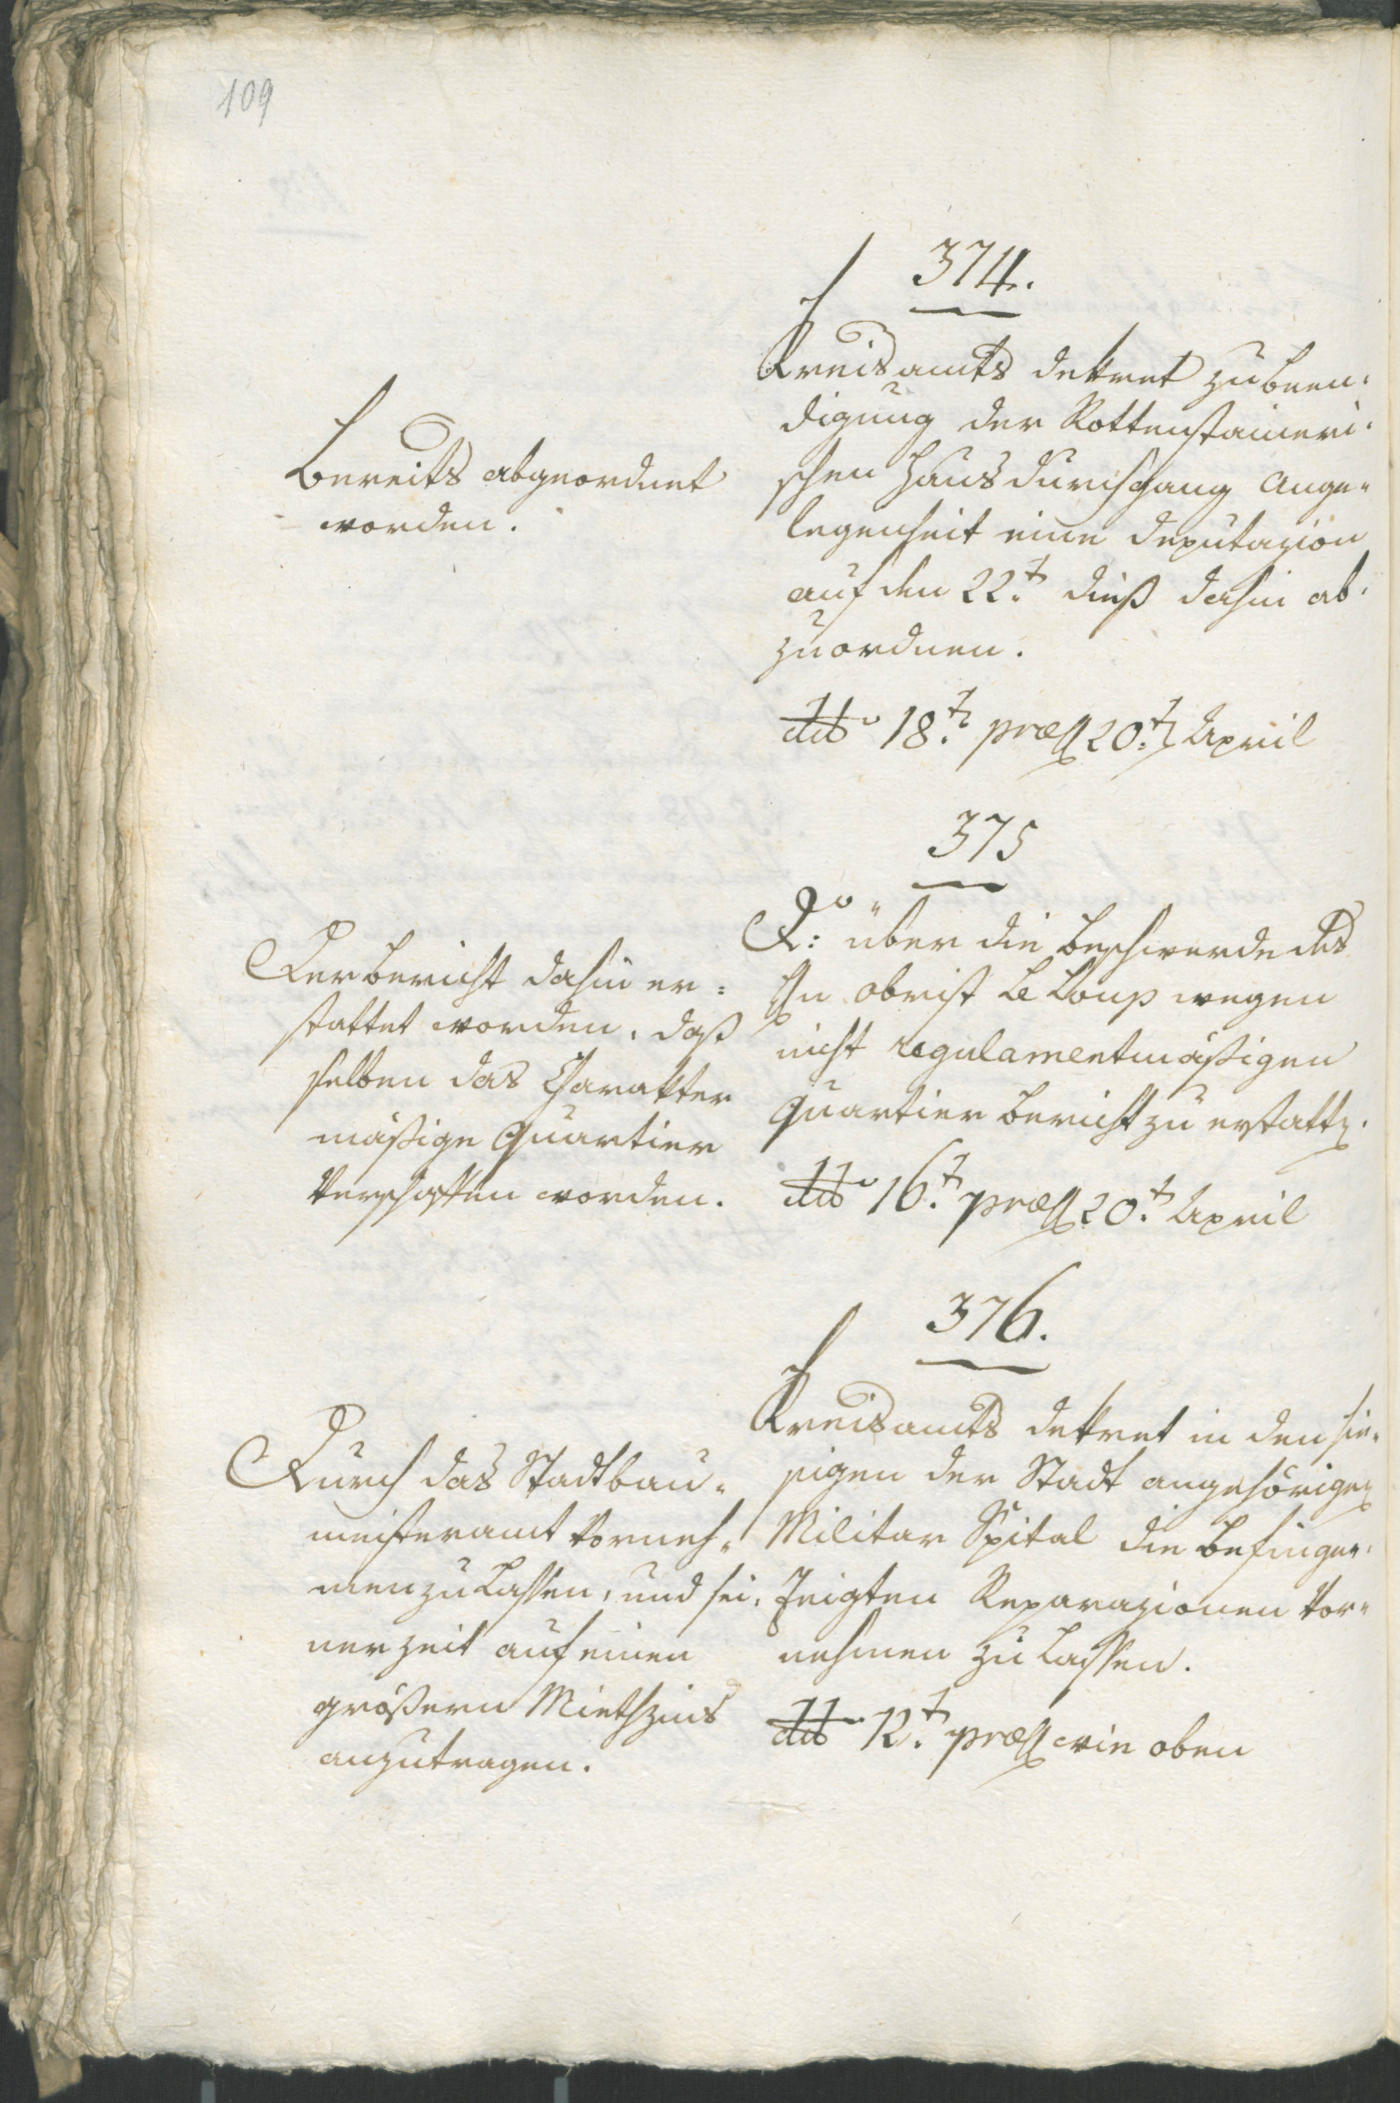 109
374.
Kreisamts Dekret zu Been¬
digung der Rottensteineri¬
schen Hausdurchgang Ange¬
legenheit eine Deputazion
auf den 22.t dieß dahin ab¬
zuordnen.
ddo 18.t præs 20.t April
Bereits abgeordnet
worden.
375
Do: über die Beschwerde des
Hn Obrist Le Loup wegen
nicht regulamentmäßigen
Quartier Bericht zu erstatten.
ddo 16.t præs 20.t April
Der Bericht dahin er¬
stattet worden, daß
selben das Charakter
mäßige Quartier
verschaffen worden.
376.
Kreisamts Dekret in den hie¬
sigen der Stadt angehörigen
Militar Spital die
zeigten Reparazionen vor¬
nehmen zu lassen.
ddo 12.t præs wie oben
Durch das Stadtbau¬
meisteramt vorneh¬
men zu lassen, und sei¬
ner Zeit auf einen
größern Miethzins
anzutragen.